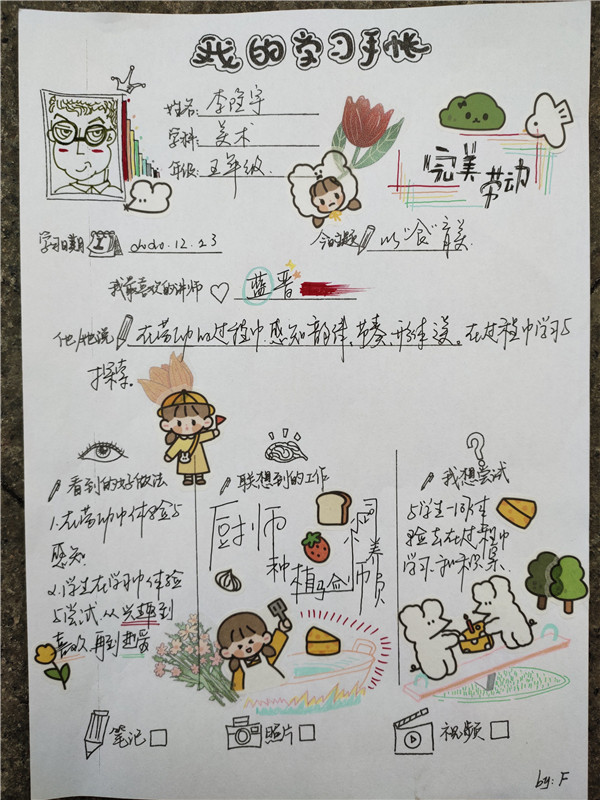 我的学习手帐
姓名: 李隆宇
学科: 美术
年级: 五年级.
完美
劳动
学习日期 2020.12.23
今日主题 以“食”育美
我最喜欢的讲师 蓝晋
他/她说 在劳动的过程中,感知韵律,节奏、形体美。在过程中学习与
探索。
看到的好做法
1.在劳动中体验与
感知.
2.学生在学习中体验
与尝试.从兴趣到
喜欢,再到热爱
联想到的工作
厨师
种植
饲养员
我想尝试
与学生一同体
验去在过程中
学习和积累.
笔记
照片
视频
by: F